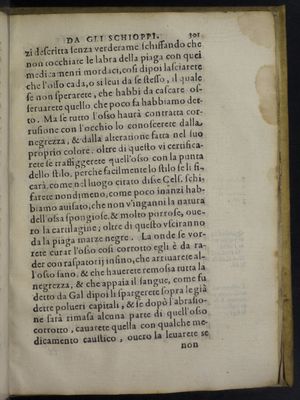 DA GLI SCHIOPPI. 301
zi descritta senza verderame schiffando che
non tocchiate le labra della piaga con quei
medicamenti mordaci, cosi dipoi lasciarete
che l'osso cada, o si leui da se stesso, il quale
se non sperarete, che habbi da cascare os-
seruarete quello che poco fa habbiamo det-
to. Ma se tutto l'osso haurà contratta cor-
rusione con l'occhio lo conoscerete dalla
negrezza, & dalla alteratione fatta nel suo
proprio colore. oltre di questo vi certifica-
rete se traffiggerete quell'osso con la punta
dello stilo, perche facilmente lo stilo se li fi-
carà, come nel luogo citato disse Cels. schi-
farete nondimeno, come poco inanzi hab-
biamo auisato, che non v'inganni la natura
dell'ossa spongiose, & molto porrose, oue-
ro la cartilagine; oltre di questo vsciranno
da la piaga marze negre. La onde se vor-
rete curar l'osso così corrotto egli è da ra-
der con raspatorij insino, che arriuarete al-
l'osso sano, & che hauerete remossa tutta la
negrezza, & che appaia il sangue, come fu
detto da Gal dipoi li spargerete sopra le già
dette polueri capitali, & se dopò l'abrasio-
ne sarà rimasa alcuna parte di quell'osso
corrotto, cauarete quella con qualche me-
dicamento caustico, ouero la leuarete se
non